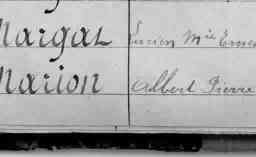 Margat Lucien Mie Ernest
Marion Albert Pierre